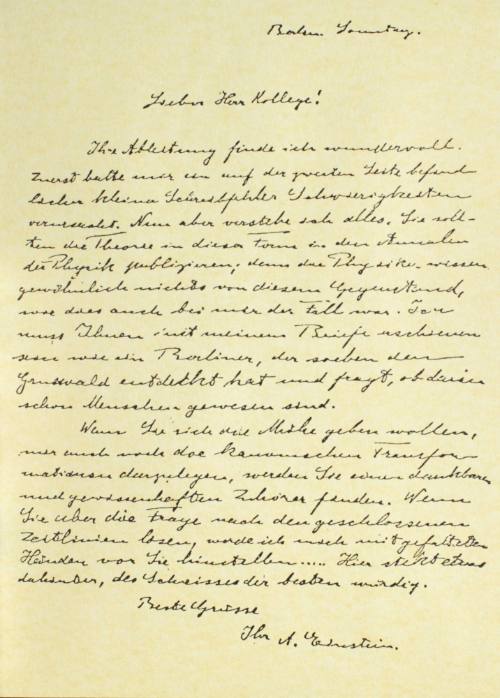 Berlin. Sonntag.
Lieber Herr Kollege!
Ihre Ableitung finde ich wundervoll.
Zuerst hatte mir ein auf der zweiten Seite befind-
licher kleine Schreibfehler Schwierigkeiten
verursacht. Nun aber verstehe ich alles. Sie soll-
ten die Theorie in dieser Form in den Annalen
der Physik publizieren, denn die Physiker wissen
gewöhnlich nichts von diesem Gegenstand,
wie dies auch bei mir der Fall war. Ich
muss Ihnen mit meinem Briefe erschienen
sein wie ein Berliner, der soeben den
Grunewald entdeckt hat und fragt, ob darin
schon Menschen gewesen sind.
Wenn Sie sich die Mühe geben wollen,
mir auch noch die kanonischen Transfor-
mationen darzulegen, werden Sie einen dankbaren
und gewissenhaften Zuhörer finden. Wenn
Sie aber die Frage nach den geschlossenen
Zeitlinien lösen, werde ich mich mit gefalteten
Händen vor Sie hinstellen..... Hier steckt etwas
dahinter, des Schweisses der Besten würdig.
Beste Grüsse
Ihr A. Einstein.